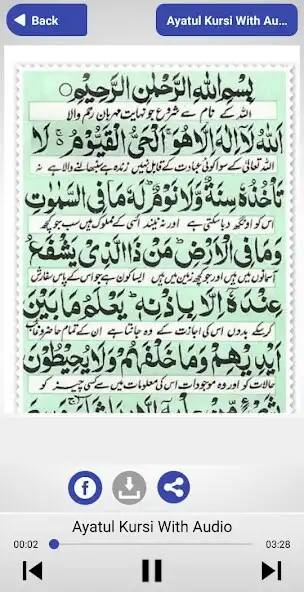 Back
Ayatul Kursi With Au...
بِسْمِ اللهِ الرَّحْمٰنِ الرَّحِيْمِ
اللہ کے نام سے شروع جو نہایت مہربان رحم والا
اَللهُ لَاۤ اِلٰهَ اِلَّا هُوَ ۚ اَلْحَيُّ الْقَيُّوْمُ ۚ لَا
اللہ تعالیٰ کے سوا کوئی عبادت کے قابل نہیں زندہ ہے سنبھالنے والا ہے نہ
تَاْخُذُهٗ سِنَةٌ وَّلَا نَوْمٌ ؕ لَهٗ مَا فِي السَّمٰوٰتِ
اس کو اونگھ دبا سکتی ہے اور نہ نیند اسی کے مملوک ہیں سب جو کچھ
وَمَا فِي الْاَرْضِ ؕ مَنْ ذَا الَّذِيْ يَشْفَعُ
آسمانوں میں ہیں اور جو کچھ زمین میں ہیں ایسا کون ہے جو اس کے پاس سفارش
عِنْدَهٗۤ اِلَّا بِاِذْنِهٖ ؕ يَعْلَمُ مَا بَيْنَ
کرسکے بدوں اس کی اجازت کے وہ جانتا ہے ان کے تمام حاضر و غائب
اَيْدِيْهِمْ وَمَا خَلْفَهُمْ ۚ وَلَا يُحِيْطُوْنَ
حالات کو اور وہ موجودات اس کی معلومات میں سے کسی چیز کو
بِشَيْءٍ مِّنْ عِلْمِهٖۤ اِلَّا بِمَا شَآءَ ۚ وَسِعَ
Ayatul Kursi With Audio
00:02
03:28